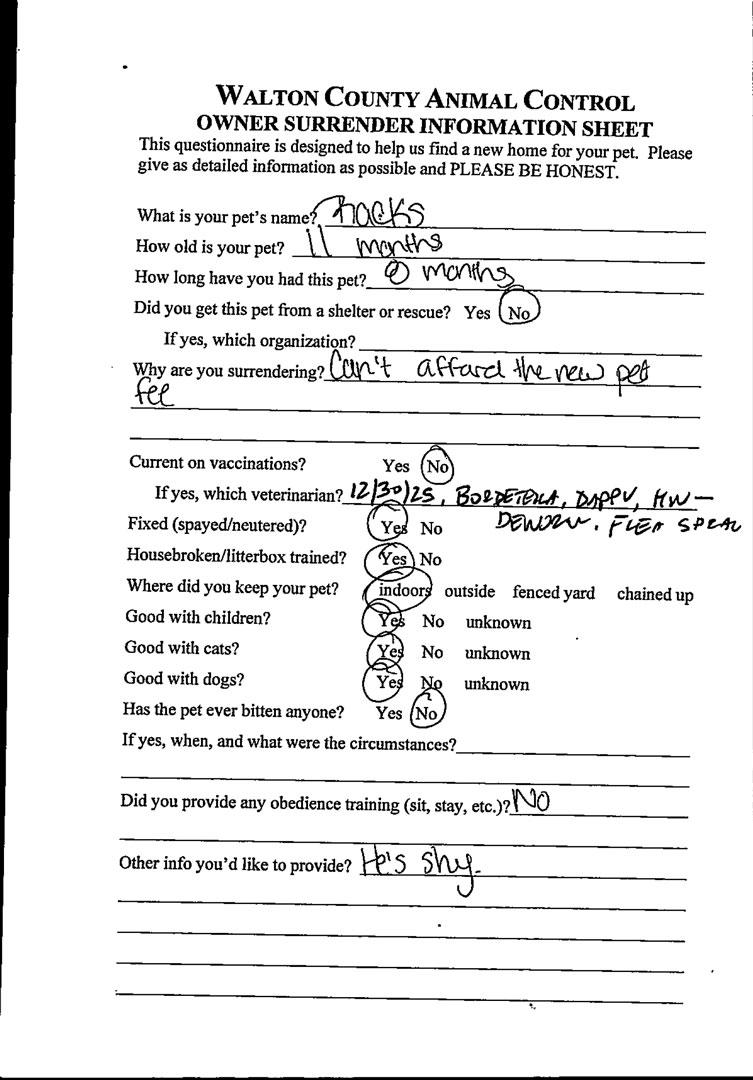 WALTON COUNTY ANIMAL CONTROL
OWNER SURRENDER INFORMATION SHEET
This questionnaire is designed to help us find a new home for your pet. Please
give as detailed information as possible and PLEASE BE HONEST.
What is your pet's name?
How old is your pet? 11 months
How long have you had this pet? months
Did you get this pet from a shelter or rescue? Yes No
If yes, which organization?
Why are you surrendering? Can't affard the new pet
fee
Current on vaccinations? Yes No
If yes, which veterinarian? 12/30/25, BORDETELLA, DAPPV, HW-
Fixed (spayed/neutered)? Yes No DEWORM. FLEA SPRAY
Housebroken/litterbox trained? Yes No
Where did you keep your pet? indoors outside fenced yard chained up
Good with children? Yes No unknown
Good with cats? Yes No unknown
Good with dogs? Yes No unknown
Has the pet ever bitten anyone? Yes No
If yes, when, and what were the circumstances?
Did you provide any obedience training (sit, stay, etc.)? NO
Other info you'd like to provide? He's shy.